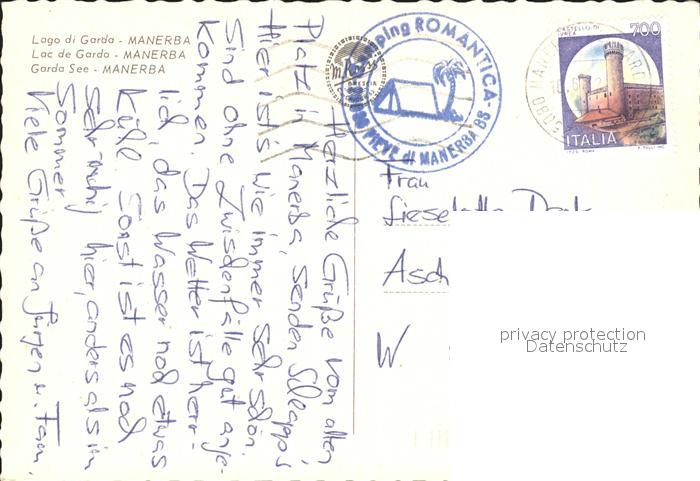 Lago di Garda - MANERBA
Lac de Garda - MANERBA
Garda See - MANERBA
Camping ROMANTICA
PIEVE di MANERBA BS
CASTELLO DI IVREA
700
ITALIA
Herzliche Grüße vom alten
Platz in Manerba, senden Schlapps
Hier ist's wie immer sehr schön.
Sind ohne Zwischenfälle gut ange-
kommen. Das Wetter ist herr-
lich, das Wasser noch etwas
kühl. Sonst ist es noch
sehr ruhig hier, anders als im
Sommer
Viele Grüße an Jürgen u. Fam.
Frau
Asch
W
privacy protection
Datenschutz